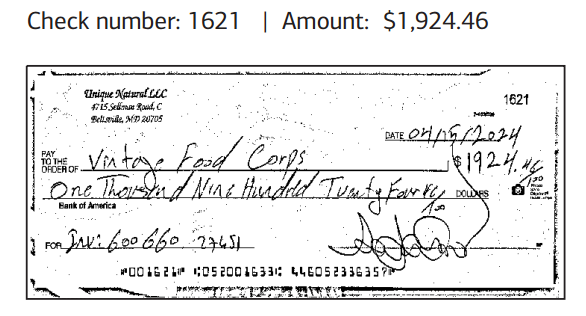 Check number: 1621 | Amount: $1,924.46
Unique Natural LLC
4715 Sellman Road, C
Beltsville, MD 20705
1621
DATE 04/15/2024
PAY TO THE ORDER OF Vintage Food Corps $1924.46/100
One Thousand Nine Hundred Twenty Four 46/100 DOLLARS
Bank of America
FOR Inv: 600660 27451
⑈001621⑈ ⑆052001633⑆ 446052336357⑈